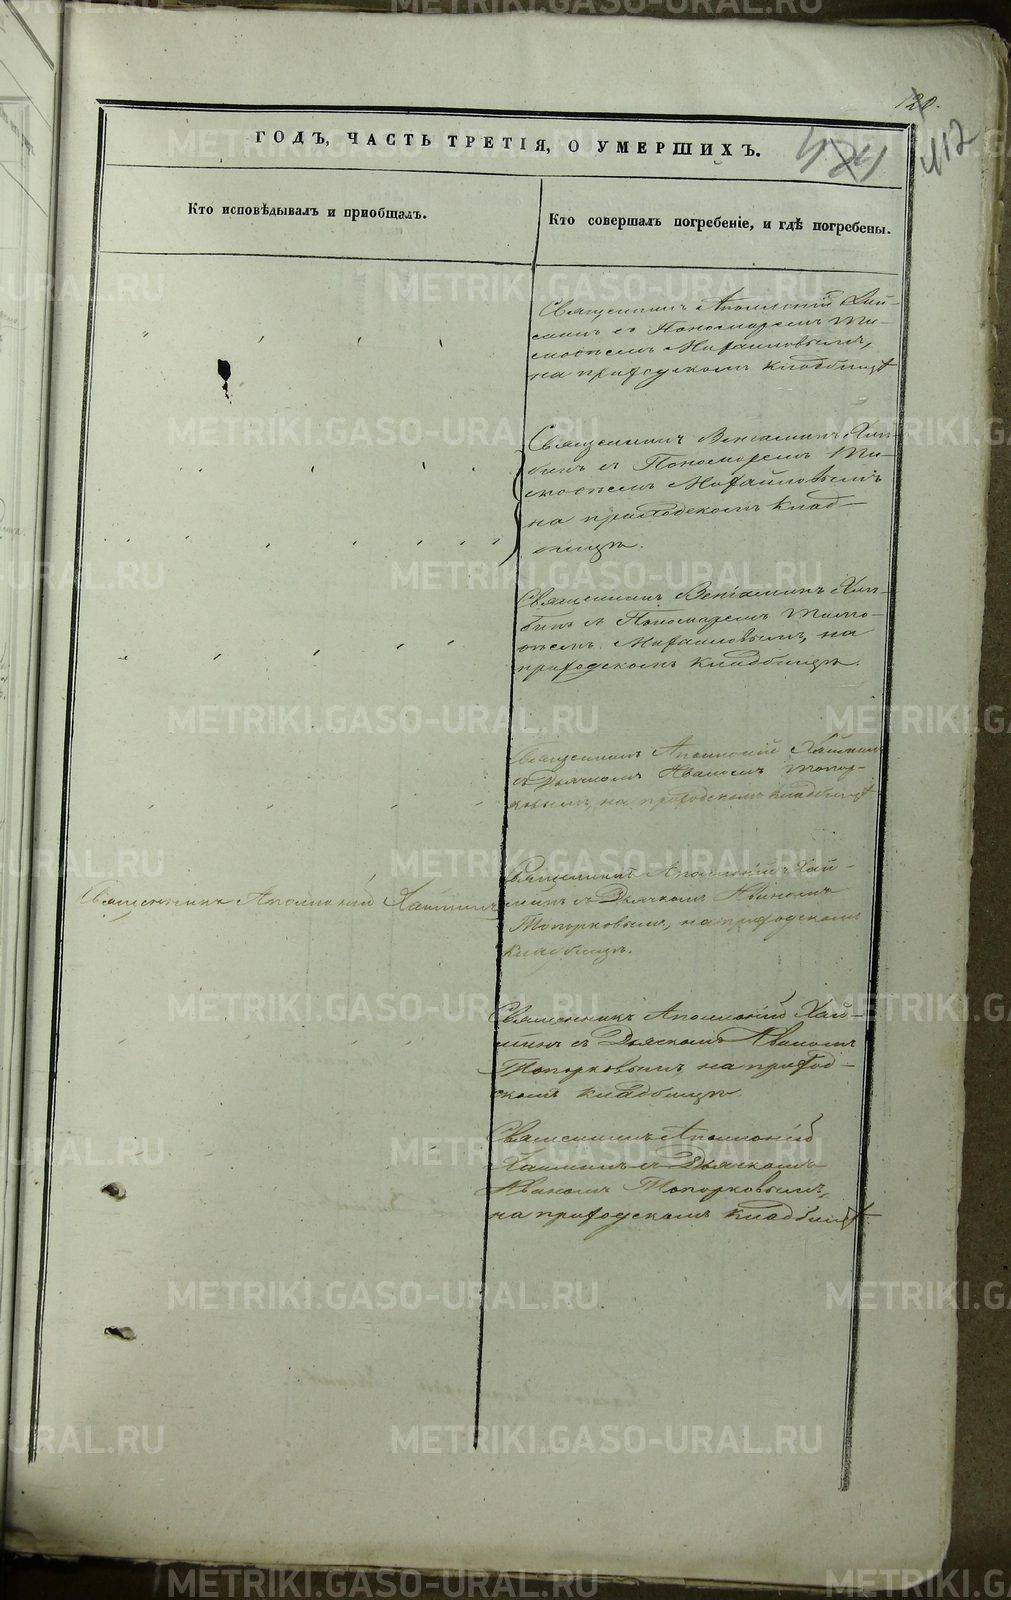 120.
ГОДЪ, ЧАСТЬ ТРЕТІЯ, О УМЕРШИХЪ.
424
412
Кто исповѣдывалъ и пріобщалъ.
Кто совершалъ погребеніе, и гдѣ погребены.
Священникъ
съ Пономаремъ Ти-
моѳеемъ Михайловымъ,
на приходскомъ кладбищѣ
Священникъ Веніаминъ Хлы-
бинъ съ Пономаремъ Ти-
моѳеемъ Михайловымъ
на приходскомъ клад-
бищѣ.
Священникъ Веніаминъ Хлы-
бинъ съ Пономаремъ Тимо-
ѳеемъ Михайловымъ, на
приходскомъ кладбищѣ.
Священникъ Аполлоній
съ Дьячкомъ Иваномъ Топор-
ковымъ, на приходскомъ кладбищѣ
Священникъ Аполлоній
Священникъ Аполлоній
съ Дьячкомъ Иваномъ
Топорковымъ, на приходскомъ
кладбищѣ.
Священникъ Аполлоній
съ Дьячкомъ Иваномъ
Топорковымъ на приход-
скомъ кладбищѣ.
Священникъ Аполлоній
съ Дьячкомъ
Иваномъ Топорковымъ,
на приходскомъ кладбищѣ.
METRIKI.GASO-URAL.RU